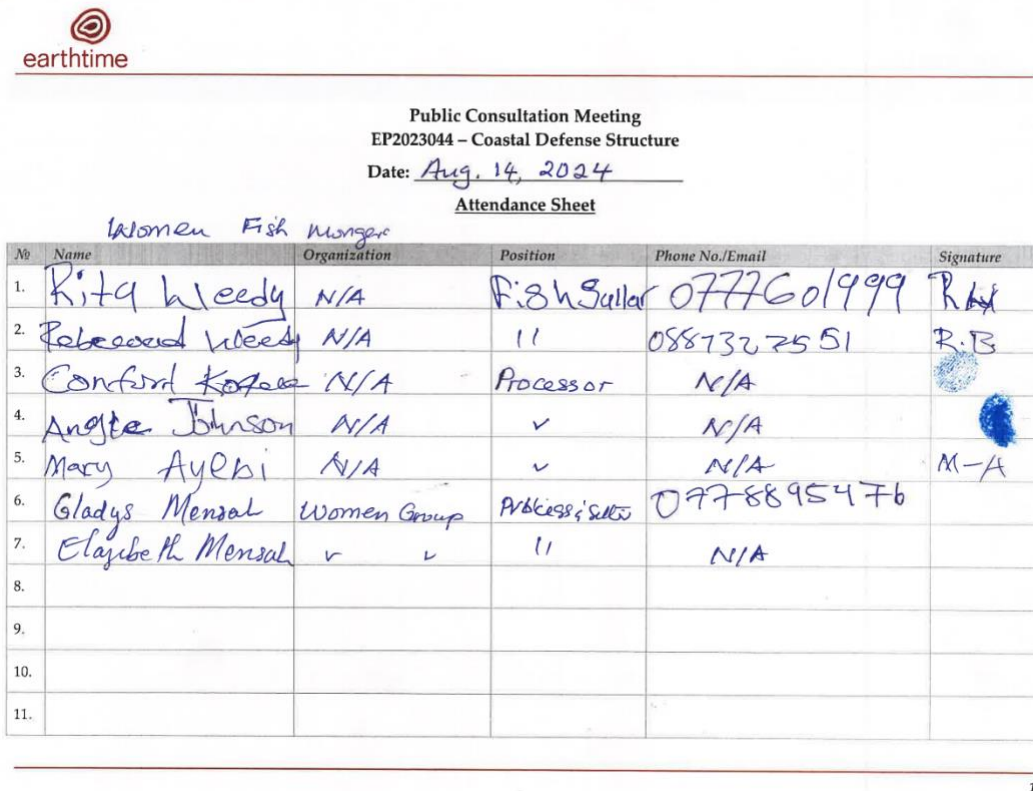 earthtime
Public Consultation Meeting
EP2023044 – Coastal Defense Structure
Date: Aug. 14, 2024
Attendance Sheet
Women Fish Mongers
№ Name Organization Position Phone No./Email Signature
1. Rita Weedy N/A Fish Sullar 0777601999
2. Weedy N/A 11 0881327551 R.B
3. N/A Processor N/A
4. Johnson N/A ✓ N/A
5. Mary Ayebi N/A ✓ N/A M-A
6. Gladys Mensah Women Group 0778895476
7. Elazibeth Mensah ✓ ✓ 11 N/A
8.
9.
10.
11.
1